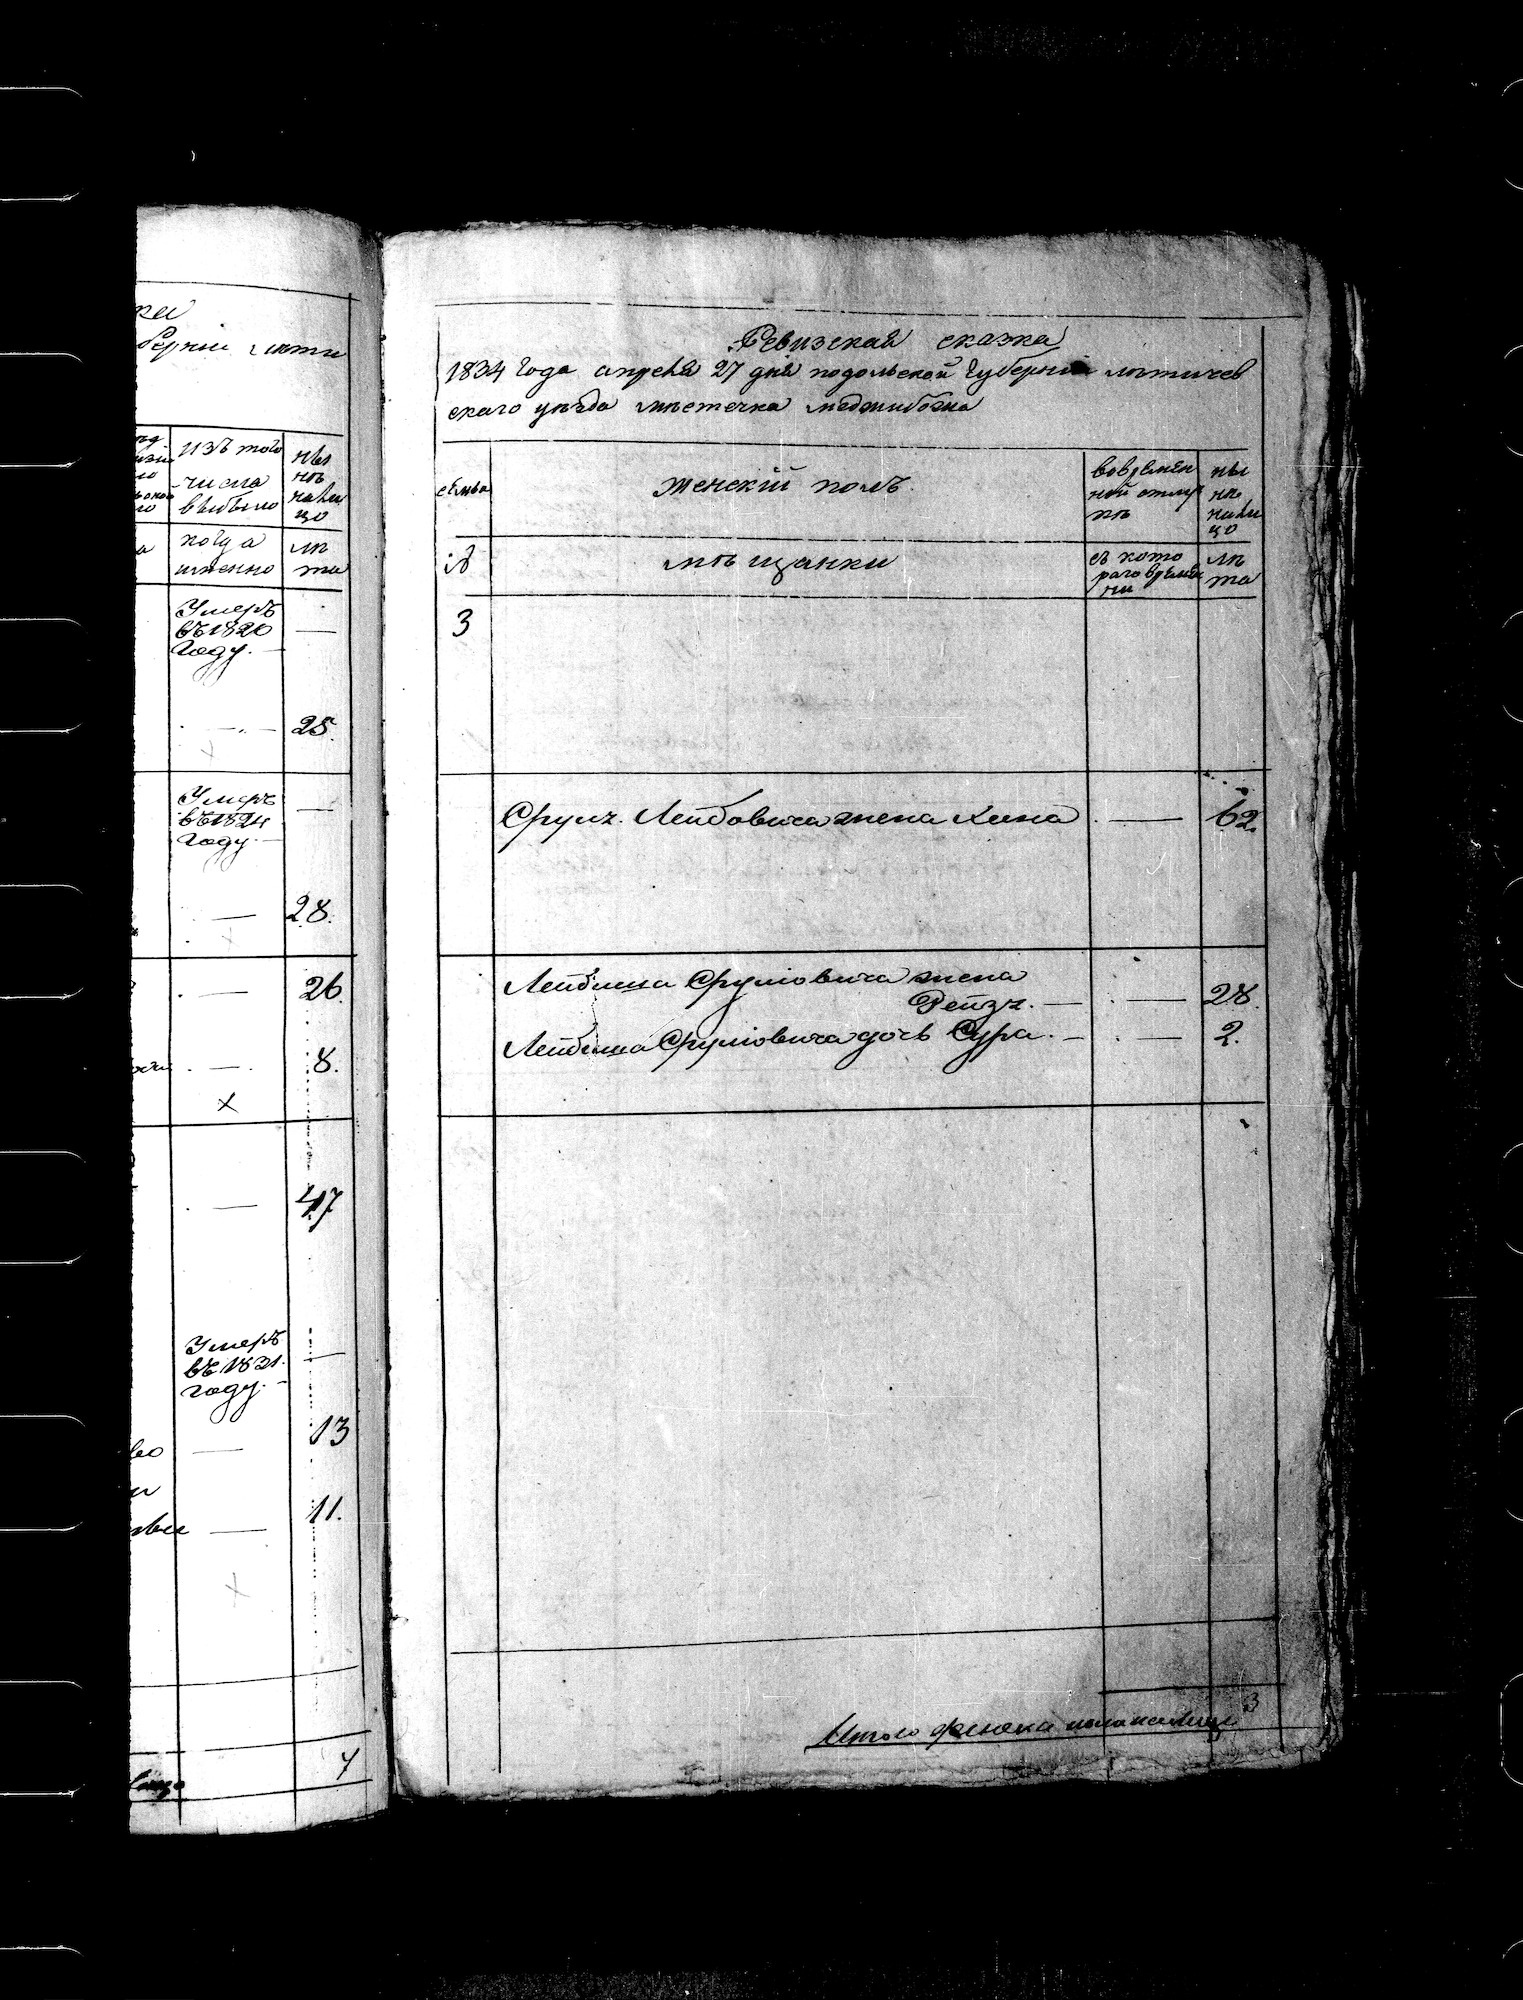 ка
берніи лати
изъ того
числа
выбыло
ны
нѣ
нали
цо
когда
именно
лѣ
та
Умеръ
въ 1820
году. —
25.
Умеръ
въ 1824
году. —
28.
26.
8.
×
47
Умеръ
въ 1821.
году. —
13
11.
Ревизская сказка
1834 года апреля 27 дня подольской Губерніи латичев
скаго уѣзда мѣстечка меджибожа
семьа
женскій полъ.
вовремян
ной отлуч
кѣ
ны
нѣ
нали
цо
№
мѣщанки
съ кото
раго време
ни
лѣ
та
3
Срулъ Лейбовича жена Хина — 62.
Лейбиша Срулiовича жена
Рейзъ. — — 28.
Лейбиша Срулiовича дочь Сура. — — 2.
Итого женска пола налице 3